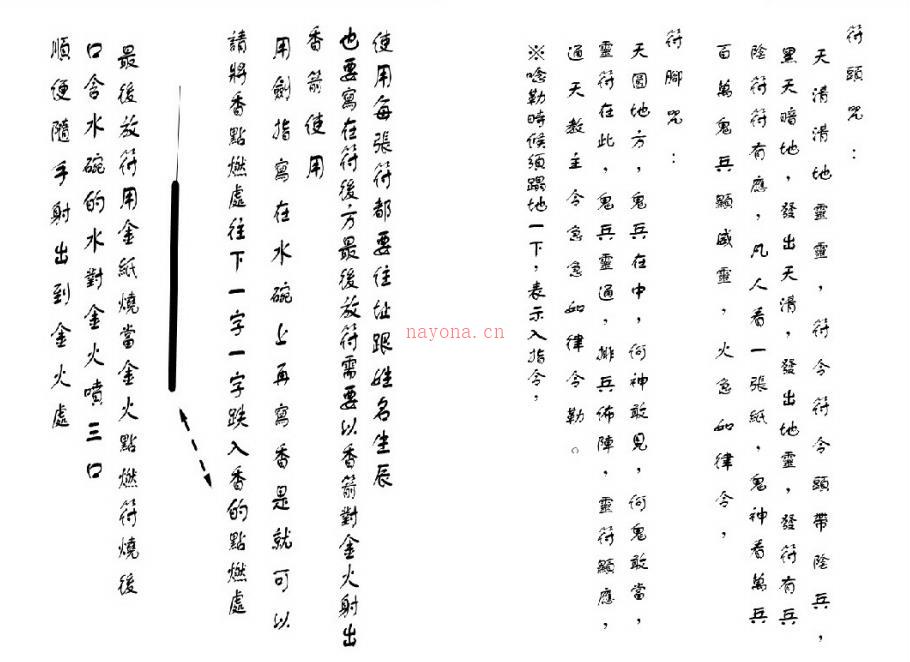 符頭咒：
天清清地靈靈，符令符令頭帶陰兵，
黑天暗地，發出天清，發出地靈，發符有兵
陰符符有應，凡人看一張紙，鬼神看萬兵
百萬鬼兵顯威靈，火急如律令，
符腳咒：
天圓地方，鬼兵在中，何神敢見，何鬼敢當，
靈符在此，鬼兵靈通，排兵佈陣，靈符顯應，
通天教主令急急如律令勒。
※唸勒時候須蹋地一下，表示入指令，
使用每張符都要住址跟姓名生辰
也要寫在符後，方最後放符需要以香箭對金火射出
香箭使用
用劍指寫在水碗上再寫香是就可以
請將香點燃處往下一字一字跌入香的點燃處
最後放符用金紙燒當金火點燃符燒後
口含水碗的水對金火噴三口
順便隨手射出到金火處
nayona.cn